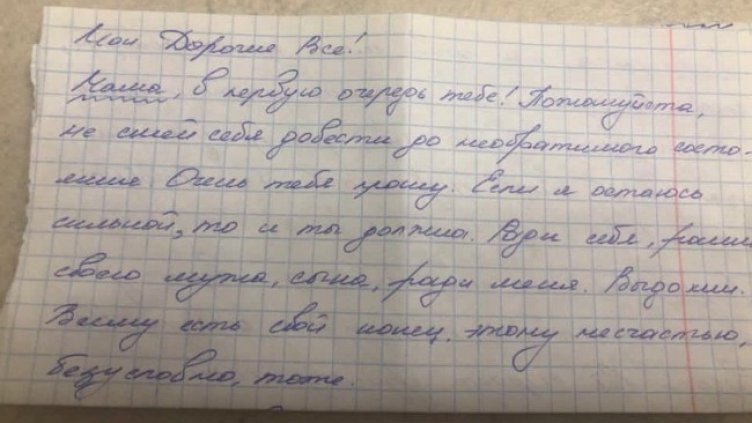 Мои Дорогие Все!
Мама, в первую очередь тебе! Пожалуйста,
не смей себя довести до необратимого состо-
яния Очень тебя прошу. Если я остаюсь
сильной, то и ты должна. Ради себя, ради
своего мужа, сына, ради меня. Выдохни.
Всему есть свой конец. этому несчастью,
безусловно, тоже.